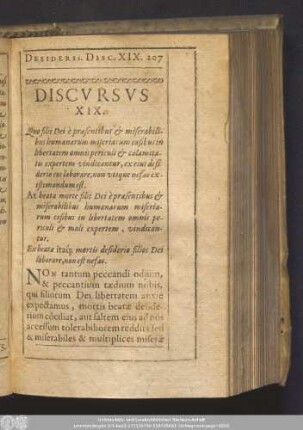 DESIDERII. DISC. XIX. 207
DISCVRSVS
XIX.
Quo filii Dei è præsentibus & miserabili-
bus humanarum miseriarum casibus in
libertatem omnis periculi & calamita-
tis expertem vindicantur, ex eius desi
derio eos laborare, non utique nefas ex-
istimandum est.
At beata morte filii Dei è præsentibus &
miserabilibus humanarum miseria-
rum casibus in libertatem omnis pe-
riculi & mali expertem, vindican-
tur.
Ex beatæ itaq; mortis desiderio filios Dei
laborare, non est nefas.
NON tantum peccandi odium,
& peccantium tædium nobis,
qui filiorum Dei libertatem anxie
expectamus, mortis beatæ deside-
rium cōciliat, aut saltem eius ad nos
accessum tolerabiliorem reddit: sed
& miserabiles & multiplices miseriæ